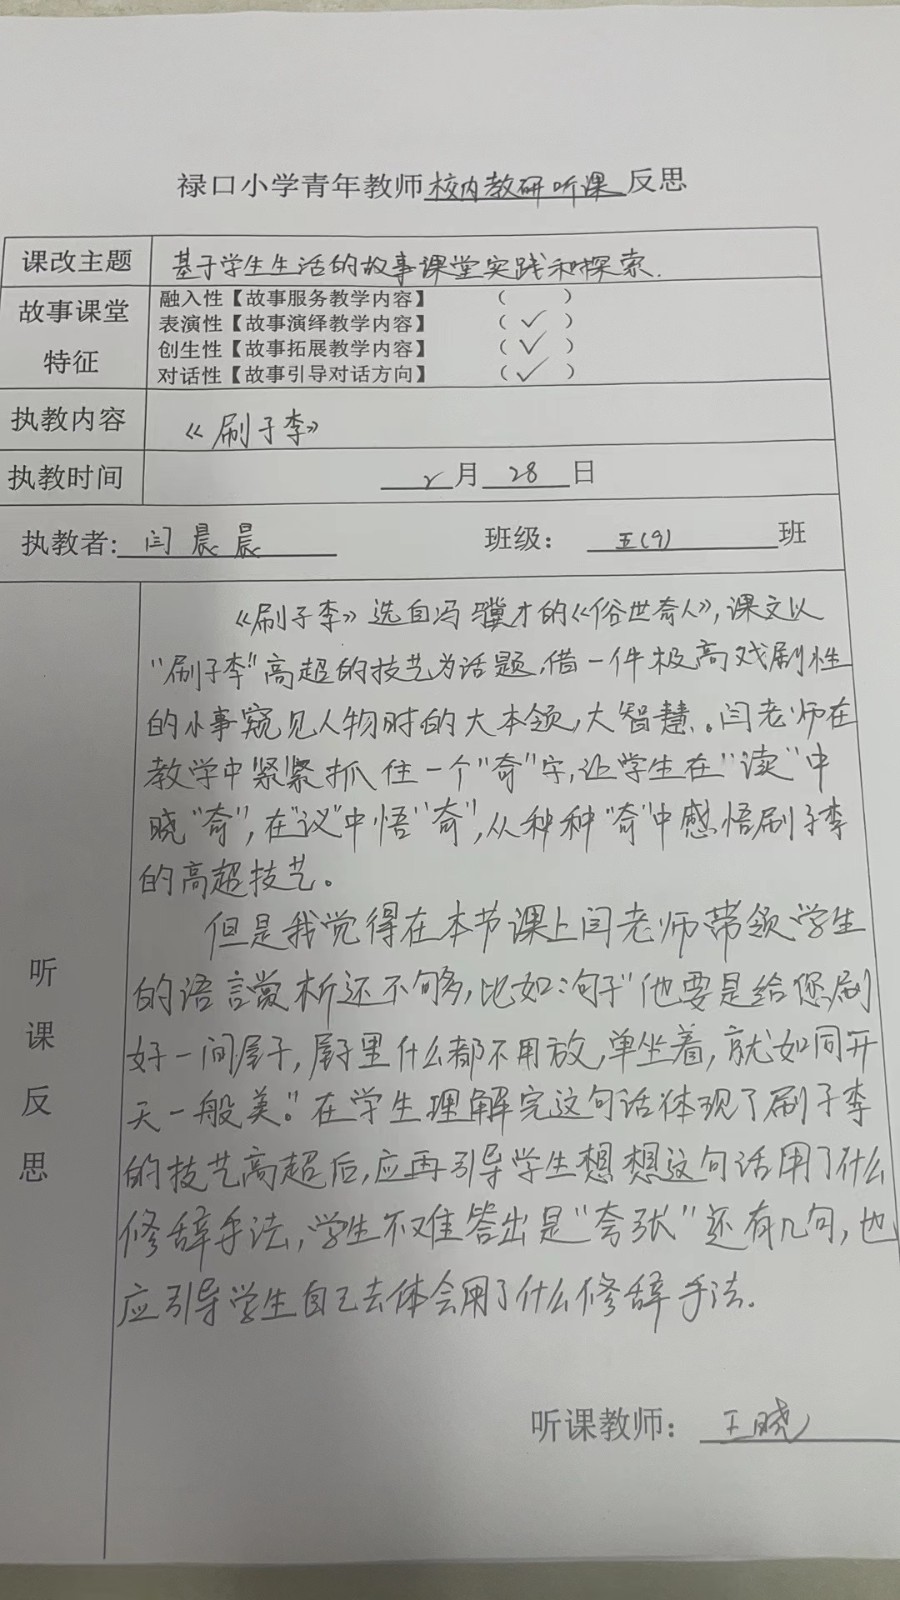 禄口小学青年教师校内教研听课反思
课改主题 基于学生生活的故事课堂实践和探索.
故事课堂特征
融入性【故事服务教学内容】 ( )
表演性【故事演绎教学内容】 (✓)
创生性【故事拓展教学内容】 (✓)
对话性【故事引导对话方向】 (✓)
执教内容 《刷子李》
执教时间 2月28日
执教者:闫晨晨 班级:五(9)班
听课反思
《刷子李》选自冯骥才的《俗世奇人》,课文以
"刷子李"高超的技艺为话题,借一件极高戏剧性
的小事窥见人物时的大本领,大智慧.。闫老师在
教学中紧紧抓住一个"奇"字,让学生在"读"中
晓"奇",在"议"中悟"奇",从种种"奇"中感悟刷子李
的高超技艺。
但是我觉得在本节课上闫老师带领学生
的语言赏析还不够多,比如:句子"他要是给您刷
好一间屋子,屋子里什么都不用放,单坐着,就如同开
天一般美."在学生理解完这句话体现了刷子李
的技艺高超后,应再引导学生想想这句话用了什么
修辞手法,学生不难答出是"夸张"还有几句,也
应引导学生自己去体会用了什么修辞手法.
听课教师:王晓